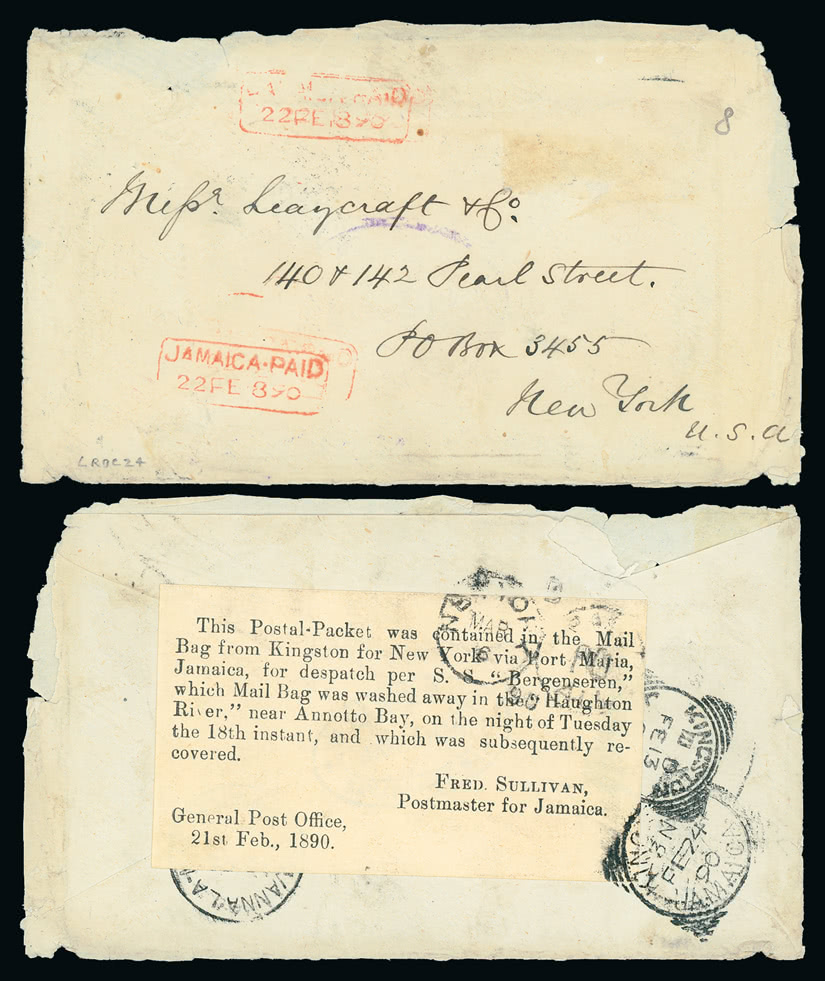 PAID
22FE 890
8
Messr. Leaycraft & Co.
140 & 142 Pearl Street.
PO Box 3455
New York
U.S.A
JAMAICA·PAID
22FE 890
LRDC24
This Postal-Packet was contained in the Mail
Bag from Kingston for New York via Port Maria,
Jamaica, for despatch per S. S. “Bergenseren,”
which Mail Bag was washed away in the “Haughton
River,” near Annotto Bay, on the night of Tuesday
the 18th instant, and which was subsequently re-
covered.
FRED. SULLIVAN,
Postmaster for Jamaica.
General Post Office,
21st Feb., 1890.
MAR
6
90
PAID
KINGSTON
FE 13
KINGSTON
FE 24
90
JAMAICA
VANNA-LA-